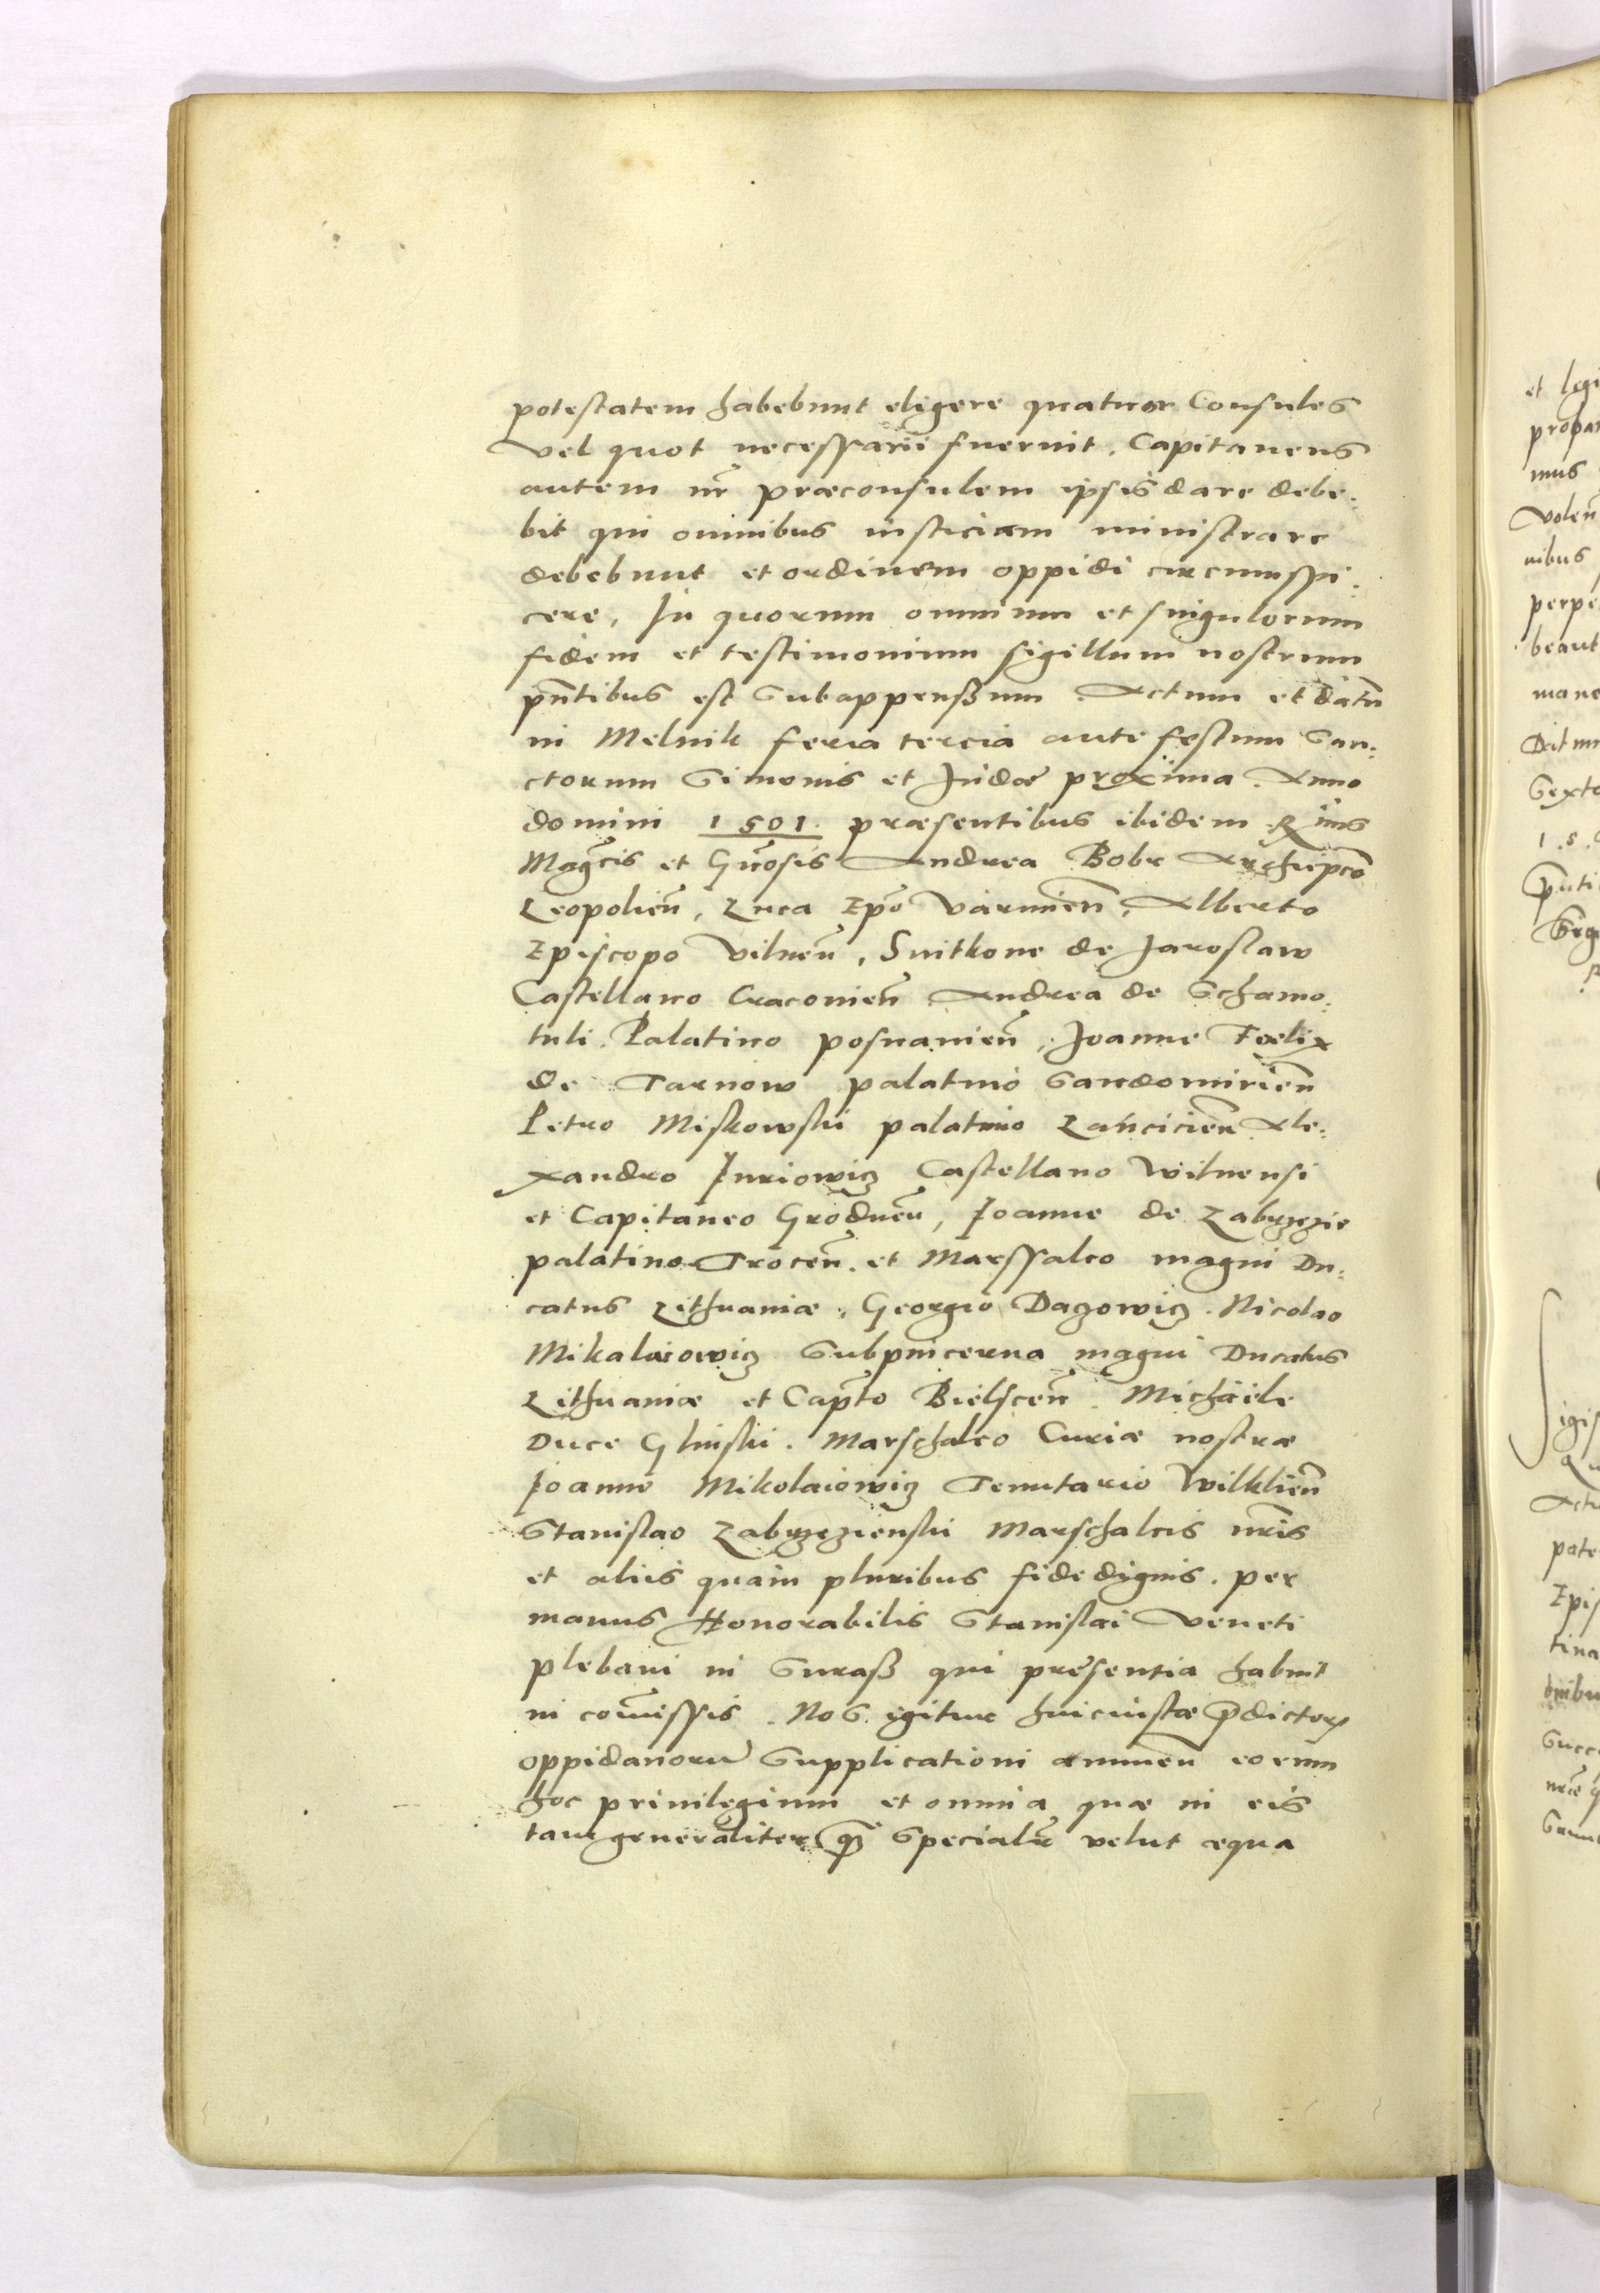 potestatem habebunt eligere quatuor Consules
vel quot necessarii fuerint. Capitaneus
autem nr̃ præconsulem ipsis dare debe.
bit qui omnibus iusticiam ministrare
debebunt et ordinem oppidi circumspi.
cere, In quorum omnium et singulorum
fidem et testimonium sigillum nostrum
pñtibus est Subappensum Actum et datũ
in Melnik feria tercia ante festum San.
ctorum Simonis et Judæ proxima. Anno
domini 1501. præsentibus ibidem Rĩms
Mag̃cis et Gñosis Andrea Bobr Archiep̃co
Leopolieñ, Luca Ep̃o Varmieñ, Alberto
Episcopo Vilneñ, Snitkone de Jaroslaw
Castellano Cracovieñ Andrea de Schamo.
tuli Palatino posnanieñ, Joanne Foelix
de Tarnow palatino Sandomirieñ
Petro Miskowski palatino Lancicieñ Ale.
xandro Juriowicz Castellano Wilnensi
et Capitaneo Grodneñ, Joanne de Zabrzezie
palatino Troceñ. et Marssalco magni Du.
catus Lithuaniæ, Georgio Dazowicz. Nicolao
Mikalaiowicz Subpincerna magni Ducatus
Lithuaniæ et Cap̃to Bielsceñ. Michäele
Duce Glinski. Marschalco Curiæ nostræ
Joanne Mikolaiowicz Tenutario Wilklieñ
Stanislao Zabrzezienski Marschalcis nr̃is
et aliis quam pluribus fidedignis. per
manus Honorabilis Stanislai Veneti
plebani in Suraß qui presentia habuit
in com̃issis. Nos igitur huic iustæ p̃dictorꝝ
oppidanorũ Supplicationi annueñ eorum
hoc privilegium et omnia quæ in eis
tam generaliter q̃ꝫ Specialr̃ velut æqua
et legi
propa
mus
volen
nibus
perpe
beant
mane
Dat
Sexto
pate
Epis
tina